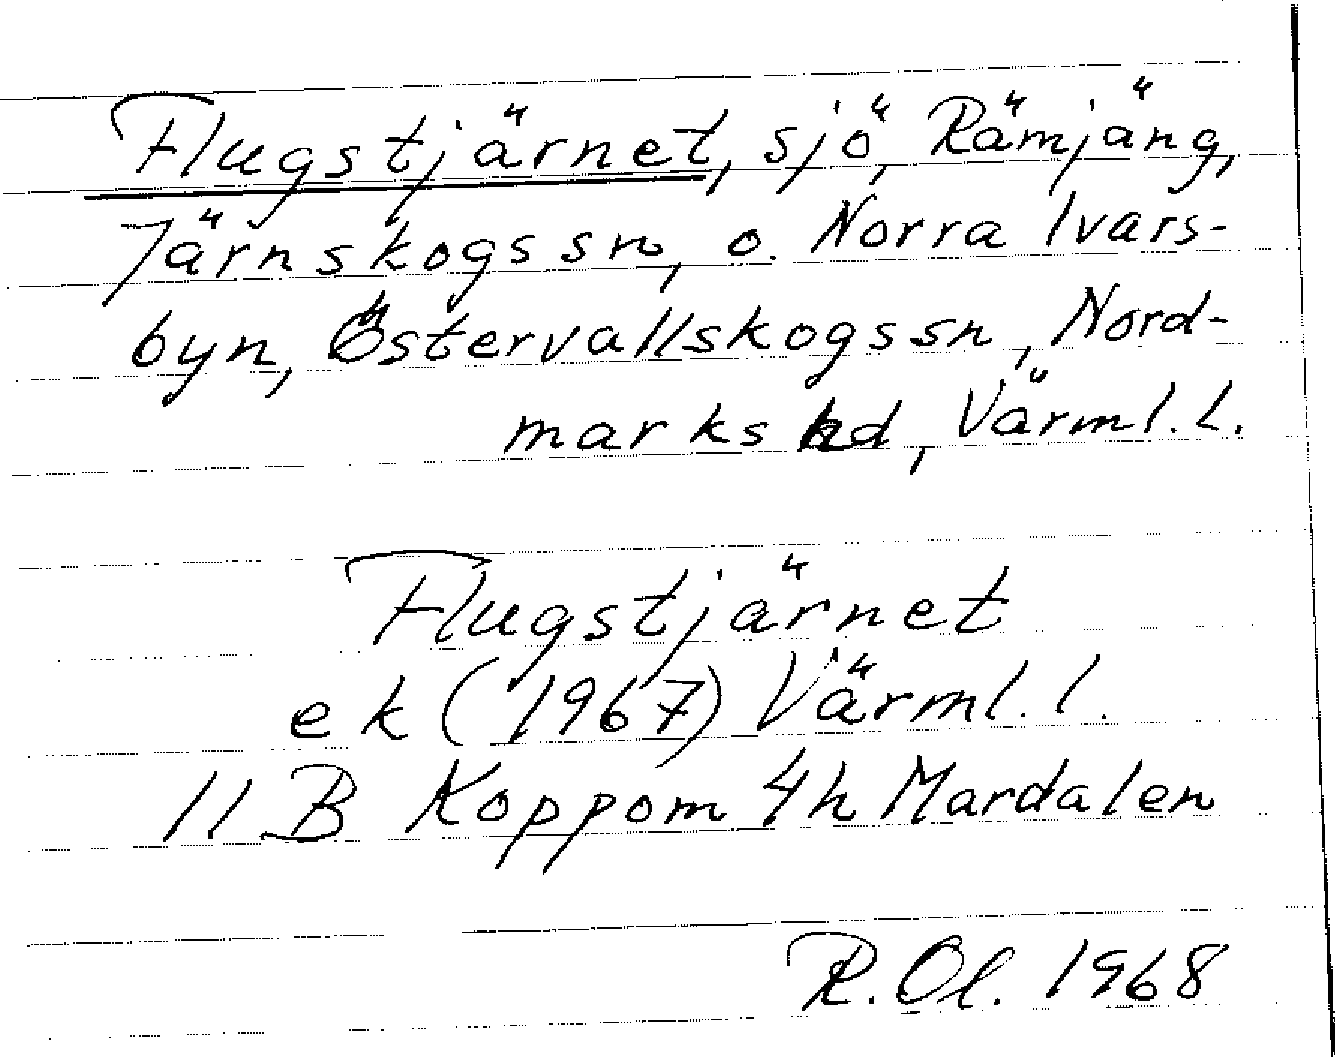 Flugstjärnet, sjö, Rämjäng,
Järnskogs sn, o. Norra Ivars-
byn, Östervallskogs sn, Nord-
marks hd, Värml. l.
Flugstjärnet
ek (1967) Värml. l.
11 B Koppom 4h Mardalen
R. Ol. 1968